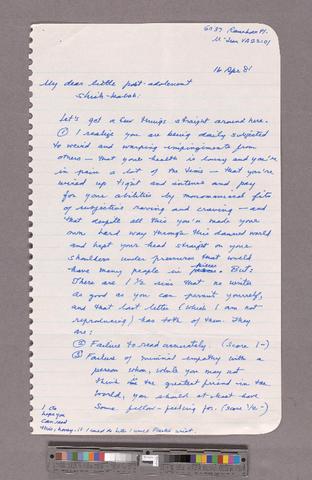 6737 Ranchero Pl.
McLean VA 22101
16 Apr 81
My dear little post-adolescent
Let's get a few things straight around here.
① I realize you are being daily subjected
to weird and warping impingements from
others — that your health is lousy and you're
in pain a lot of the time — that you're
wired up tight and intense and pay
for your abilities by monumental fits
of subjective raving and craving — and
that despite all this you've made your
own hard way through this damned world
and kept your head straight on your
shoulders under pressures that would
have many people in pieces. But:
There are 1 ½ sins that no writer
as good as you can permit yourself,
and that last letter (which I am not
reproducing) has both of them. They
are:
Ⓐ Failure to read accurately. (Score 1-)
Ⓑ Failure of minimal empathy with a
person whom, while you may not
think him the greatest friend in the
world, you should at least have
some fellow-feeling for. (Score ½-)
I do
hope you
can read
this, honey.